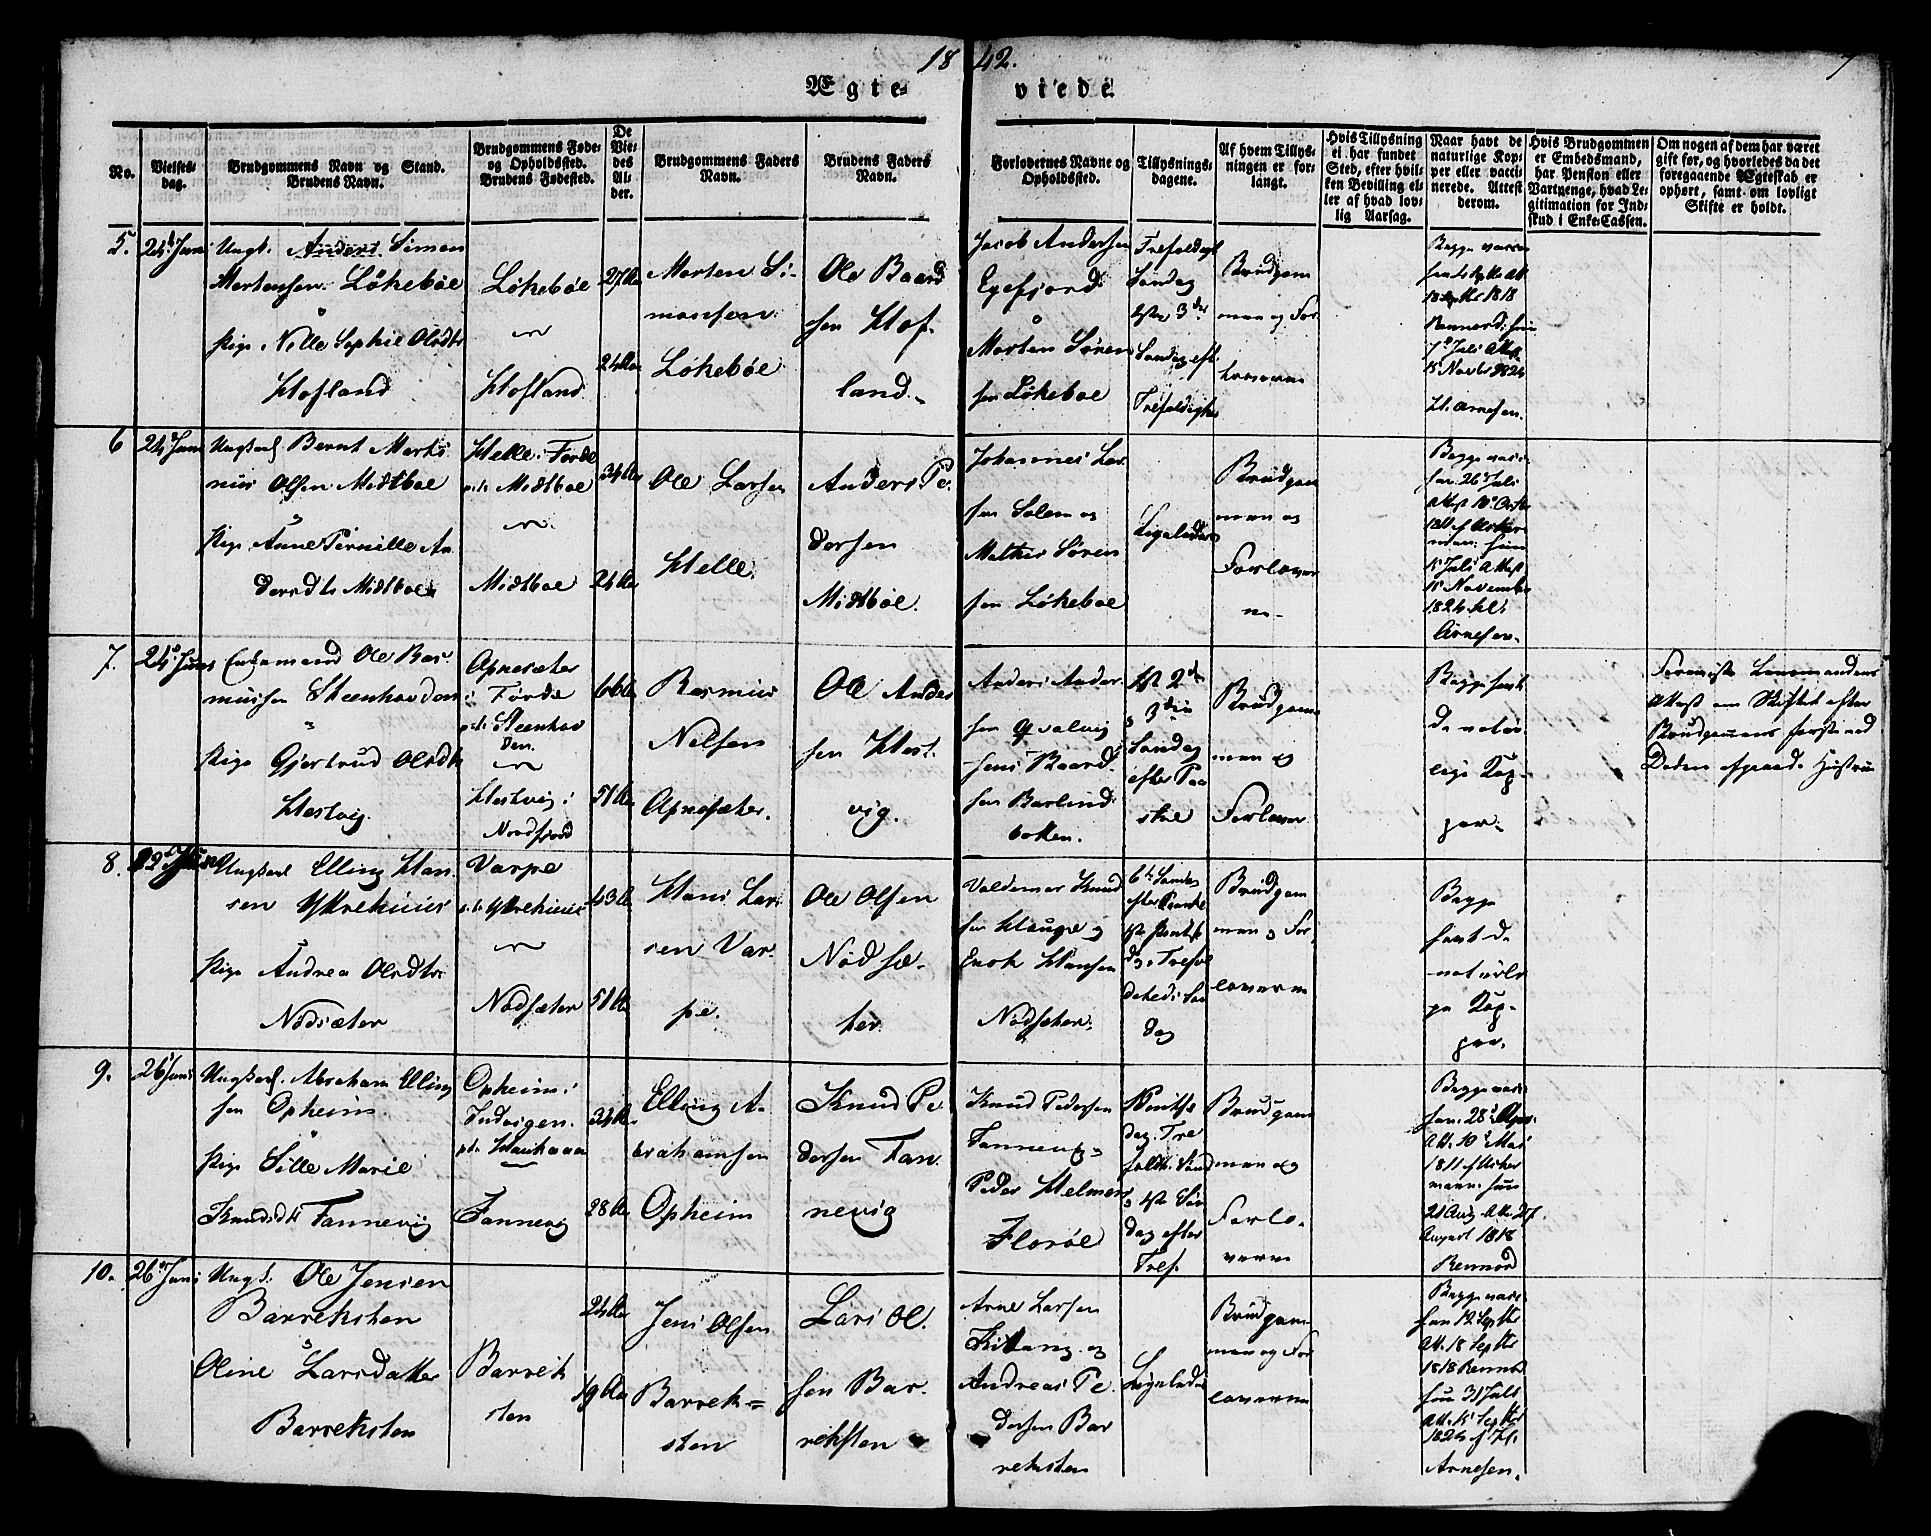 18 42.
7
Ægte viede.
No.
Vielses-
dag.
Brudgommens Navn og Stand.
Brudens Navn.
Brudgommens Føde-
og Opholdssted.
Brudens Fødested.
De
Vie-
des
Al-
der.
Brudgommens Faders
Navn.
Brudens Faders
Navn.
Forlovernes Navne og
Opholdssted.
Tillysnings-
dagene.
Af hvem Tillys-
ningen er for-
langt.
Hvis Tillysning
ei har fundet
Sted, efter hvil-
ken Bevilling el-
ler af hvad lov-
lig Aarsag.
Naar havt de
naturlige Kop-
per eller vacci-
nerede. Attest
derom.
Hvis Brudgommen
er Embedsmand,
har Pension eller
Vartpenge, hvad Le-
gitimation for Ind-
skud i Enke-Cassen.
Om nogen af dem har været
gift før, og hvorledes da det
foregaaende Ægteskab er
ophørt, samt om lovligt
Skifte er holdt.
5.
24 Juni
Ungk. Anders Simon
Mortensen Løkebøe
Pige Nille Sophie Olsdtr
Hofland
Løkebøe
Hofland
27
24
Morten Si-
monsen
Løkebøe
Ole Baard
sen Hof-
land.
Jacob Andersen
Egefjord
Morten Søren
sen Løkeboe
Trefoldigh
Søndag
3die
Søndag eft.
Trefoldighed
Brudgom
men og For
loverne
Bagge vacci
18 Septbr 1818
Rennord: hun
7 Juli Attest
15 Novbr 1824
H. Arnesen.
6
24 Juni
Ungkarl Bernt Marti
nus Olsen Midtboe
Pige Anne Pernille An
dersdtr Midtboe
Helle i Førde
Midtboe
Midtboe
34
24
Ole Larsen
Helle
Anders Pe-
dersen
Midtbøe.
Johannes Lar
sen Solem og
Mathis Søren
sen Løkeboe
Ligeledes
Brudgom
men og
Forlover
ne.
Begge vacci
26 Juli
Attest
hun
15 Juli Attest
15 November
1824
Arnesen.
7.
24 Juni
Enkemand Ole Ras-
mussen Steenhovden
Pige Gjertrud Olsdtr
Hestvig.
Apnesæter
i Førde
Steenhov
den.
Hestvig i
Nordfjord
66
51
Rasmus
Nilsen
Apnesæter.
Ole Anders
sen Hest-
vig.
Anders Ander
sen Qvalvig
Jens Baard-
sen Barlind-
botten.
2den
3die
Søndag
efter Paa
ske
Brudgom
men og
Forlover
Begge havt
de natur
lige Kop-
per.
Foreviste Lensmandens
Attest om Skiftet efter
Brudgommens første ved
Døden afgaaede Hustrue
8.
Juni
Ungkarl Elling Han
sen Ytrehuus
Pige Andrea Olsdtr
Nødsæter
Varpe
Ytrehuus
Nødsæter
43
51
Hans Lar
sen Var-
pe.
Ole Olsen
Nødsæ-
ter.
Valdemar Knud
sen Haupe og
Enok Hansen
Nødsæter.
6te Søndag
efter Paaske
dag, Trefol
digheds Søn
dag
Brudgom
men og For
loverne
Begge
havt de
naturli
ge Kop-
per.
9.
26 Juni
Ungkarl Abraham Elling
sen Opheim
Pige Sille Marie
Knudsdtr Fannevig
Opheim i
Indvigen.
Fannevig
34
28
Elling A-
brahamsen
Opheim
Knud Pe
dersen Fan-
nevig
Knud Pedersen
Fannevig
Peder Helmers
Florøe
Pintse
dag, Tre
foldh. Sønd
1ste Søn
dag efter
Tref.
Brudgom
men og
Forlo-
verne
Begge vacci
28 Apr.
Att. 10 Mai
1811
hun
21 Aug. Att. 27
August 1818
Rennord
10.
26 Juni
Ungk. Ole Jensen
Barreksten
Oline Larsdatter
Barreksten
Barrek
sten
24
19
Jens Olsen
Barrek-
sten
Lars Ol-
sen Bar-
reksten
Arne Larsen
Kittang og
Andreas Pe-
dersen Bar
reksten
Ligeledes
Brudgom
men og For
loverne
Begge vacci
han 12 Septbr
Att. 18 Septbr
1818 Rennord
hun 31 Juli
Att. 15 Septbr
1824 H.
Arnesen.